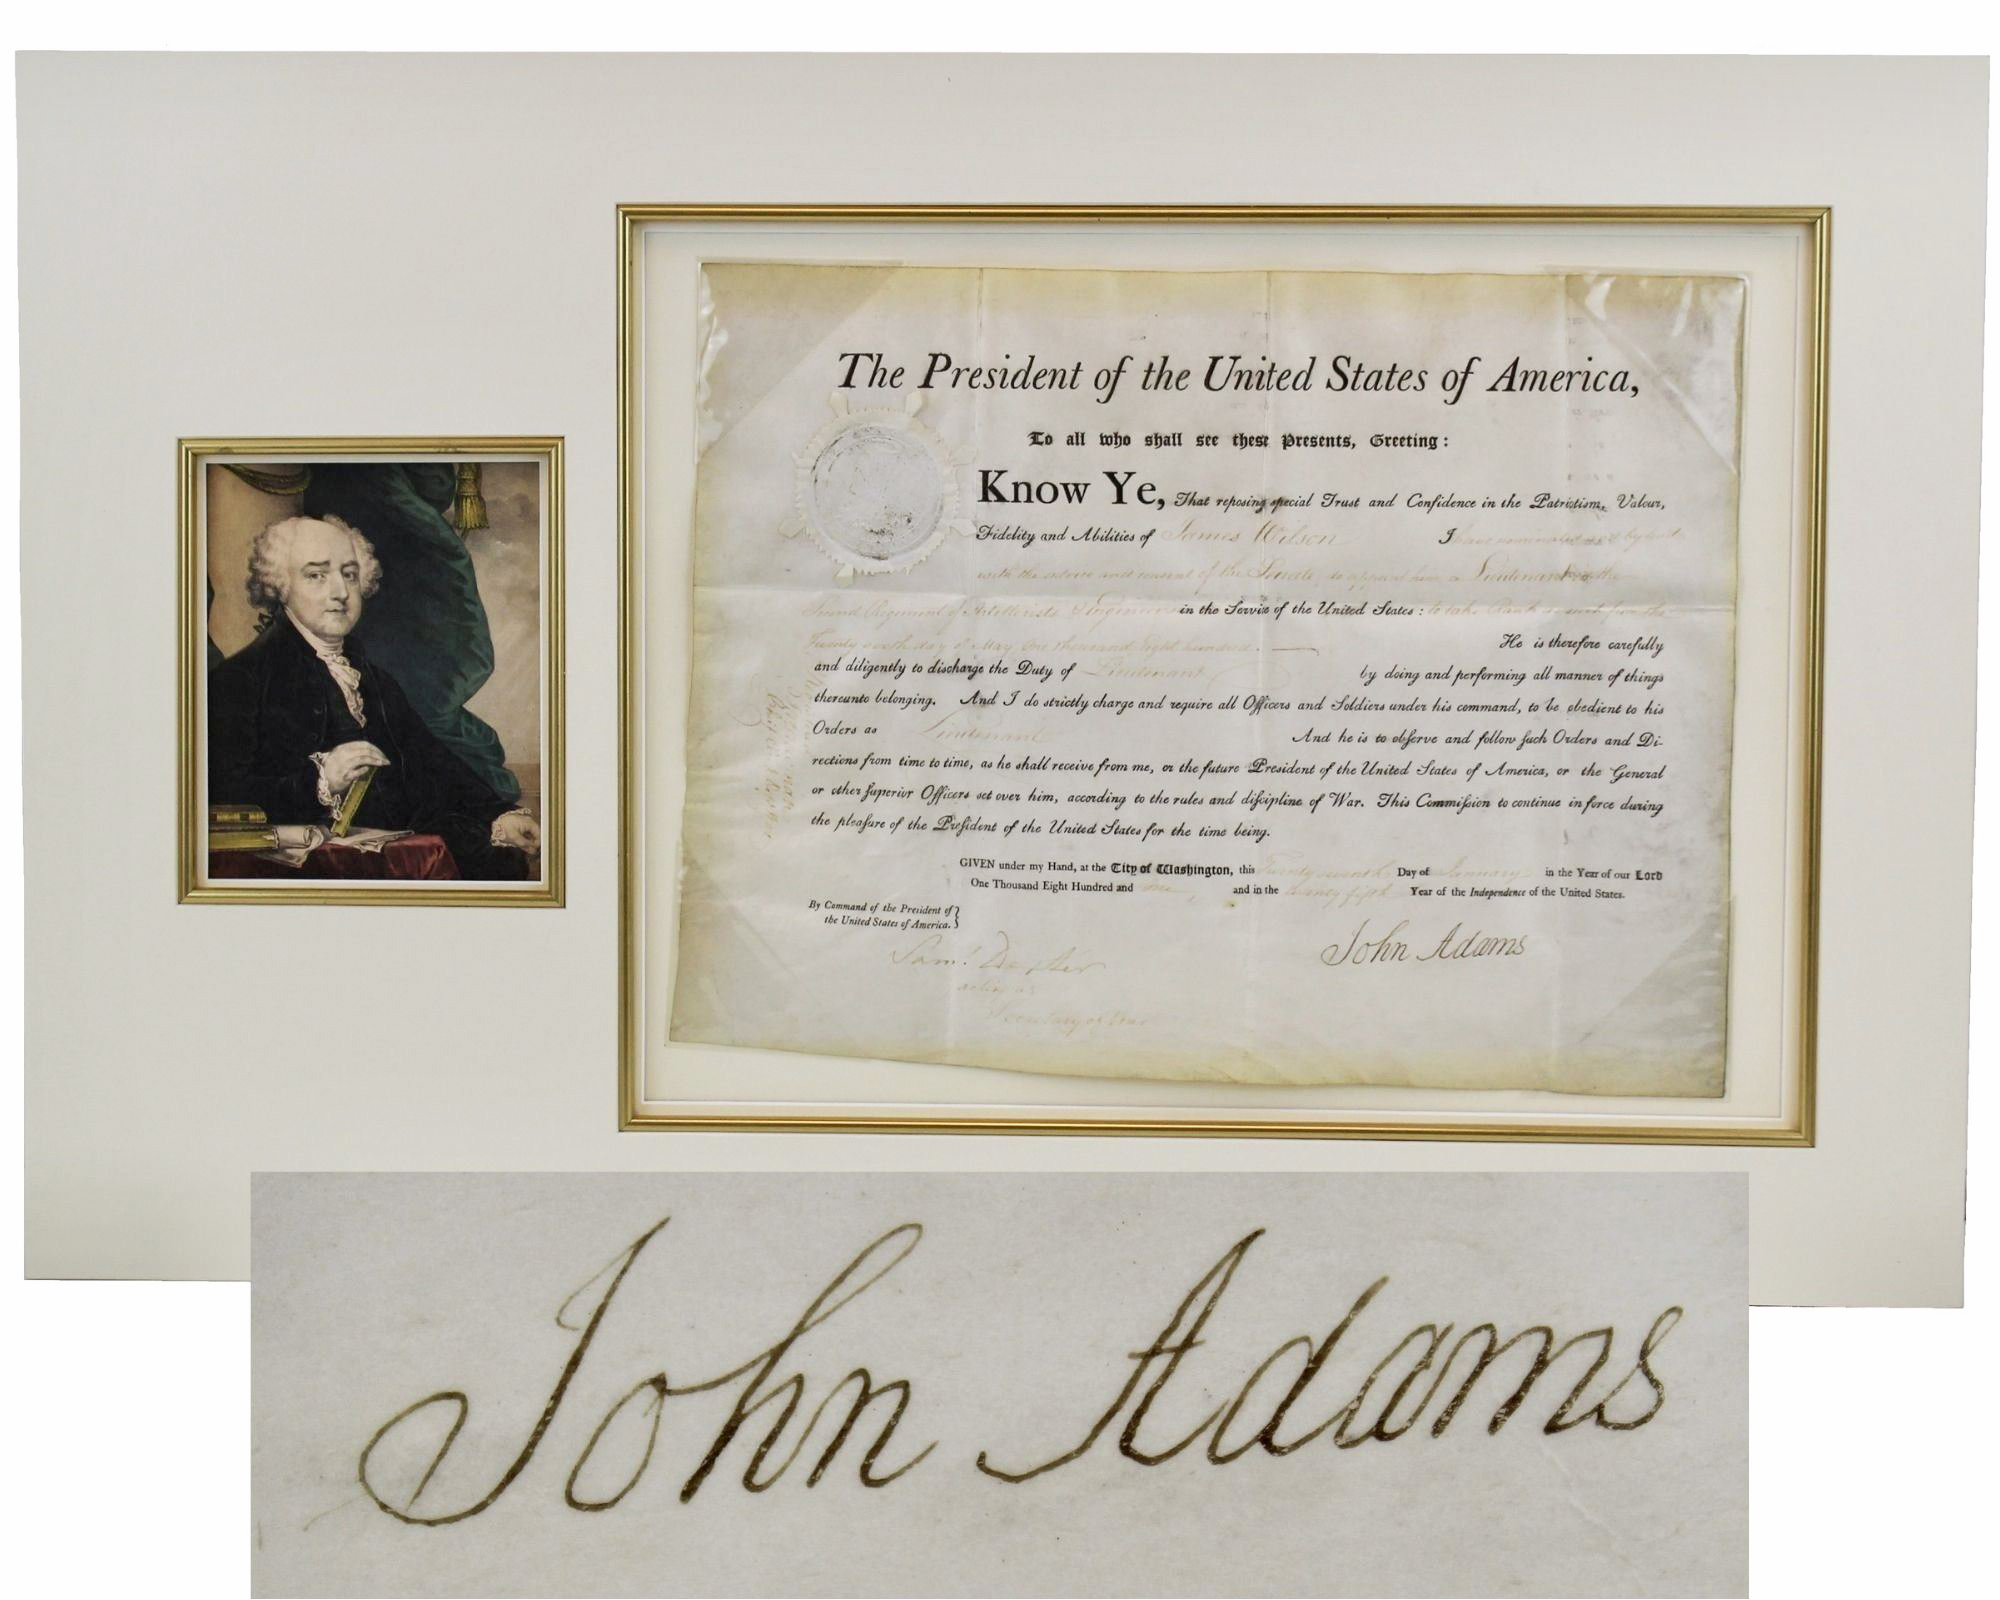 The President of the United States of America,
To all who shall see these Presents, Greeting:
Know Ye, That reposing special Trust and Confidence in the Patriotism, Valour,
Fidelity and Abilities of James Wilson I have nominated and by and
with the advice and consent of the Senate, do appoint him a Lieutenant in the
Second Regiment of Artillerists & Engineers in the Service of the United States: to take Rank as such from the
Twenty day of May One thousand Eight hundred. He is therefore carefully
and diligently to discharge the Duty of Lieutenant by doing and performing all manner of things
thereunto belonging. And I do strictly charge and require all Officers and Soldiers under his command, to be obedient to his
Orders as Lieutenant And he is to observe and follow such Orders and Di-
rections from time to time, as he shall receive from me, or the future President of the United States of America, or the General
or other superior Officers set over him, according to the rules and discipline of War. This Commission to continue in force during
the pleasure of the President of the United States for the time being.
GIVEN under my Hand, at the City of Washington, this Twenty seventh Day of January in the Year of our Lord
One Thousand Eight Hundred and one, and in the twenty fifth Year of the Independence of the United States.
By Command of the President of
the United States of America.
John Adams
Sam! Dexter
acting as
Secretary of War
John Adams